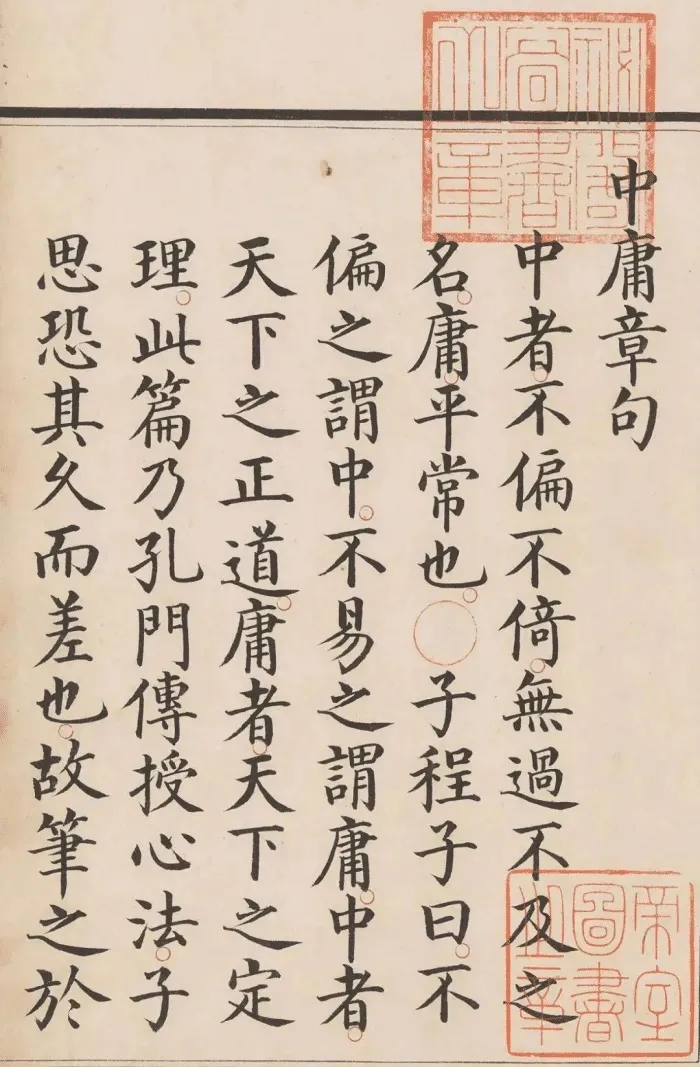 秘閣圖書之章
中庸章句
中者。不偏不倚。無過不及之
名。庸。平常也。○子程子曰。不
偏之謂中。不易之謂庸。中者。
天下之正道。庸者。天下之定
理。此篇乃孔門傳授心法。子
思恐其久而差也。故筆之於
帝室圖書之章